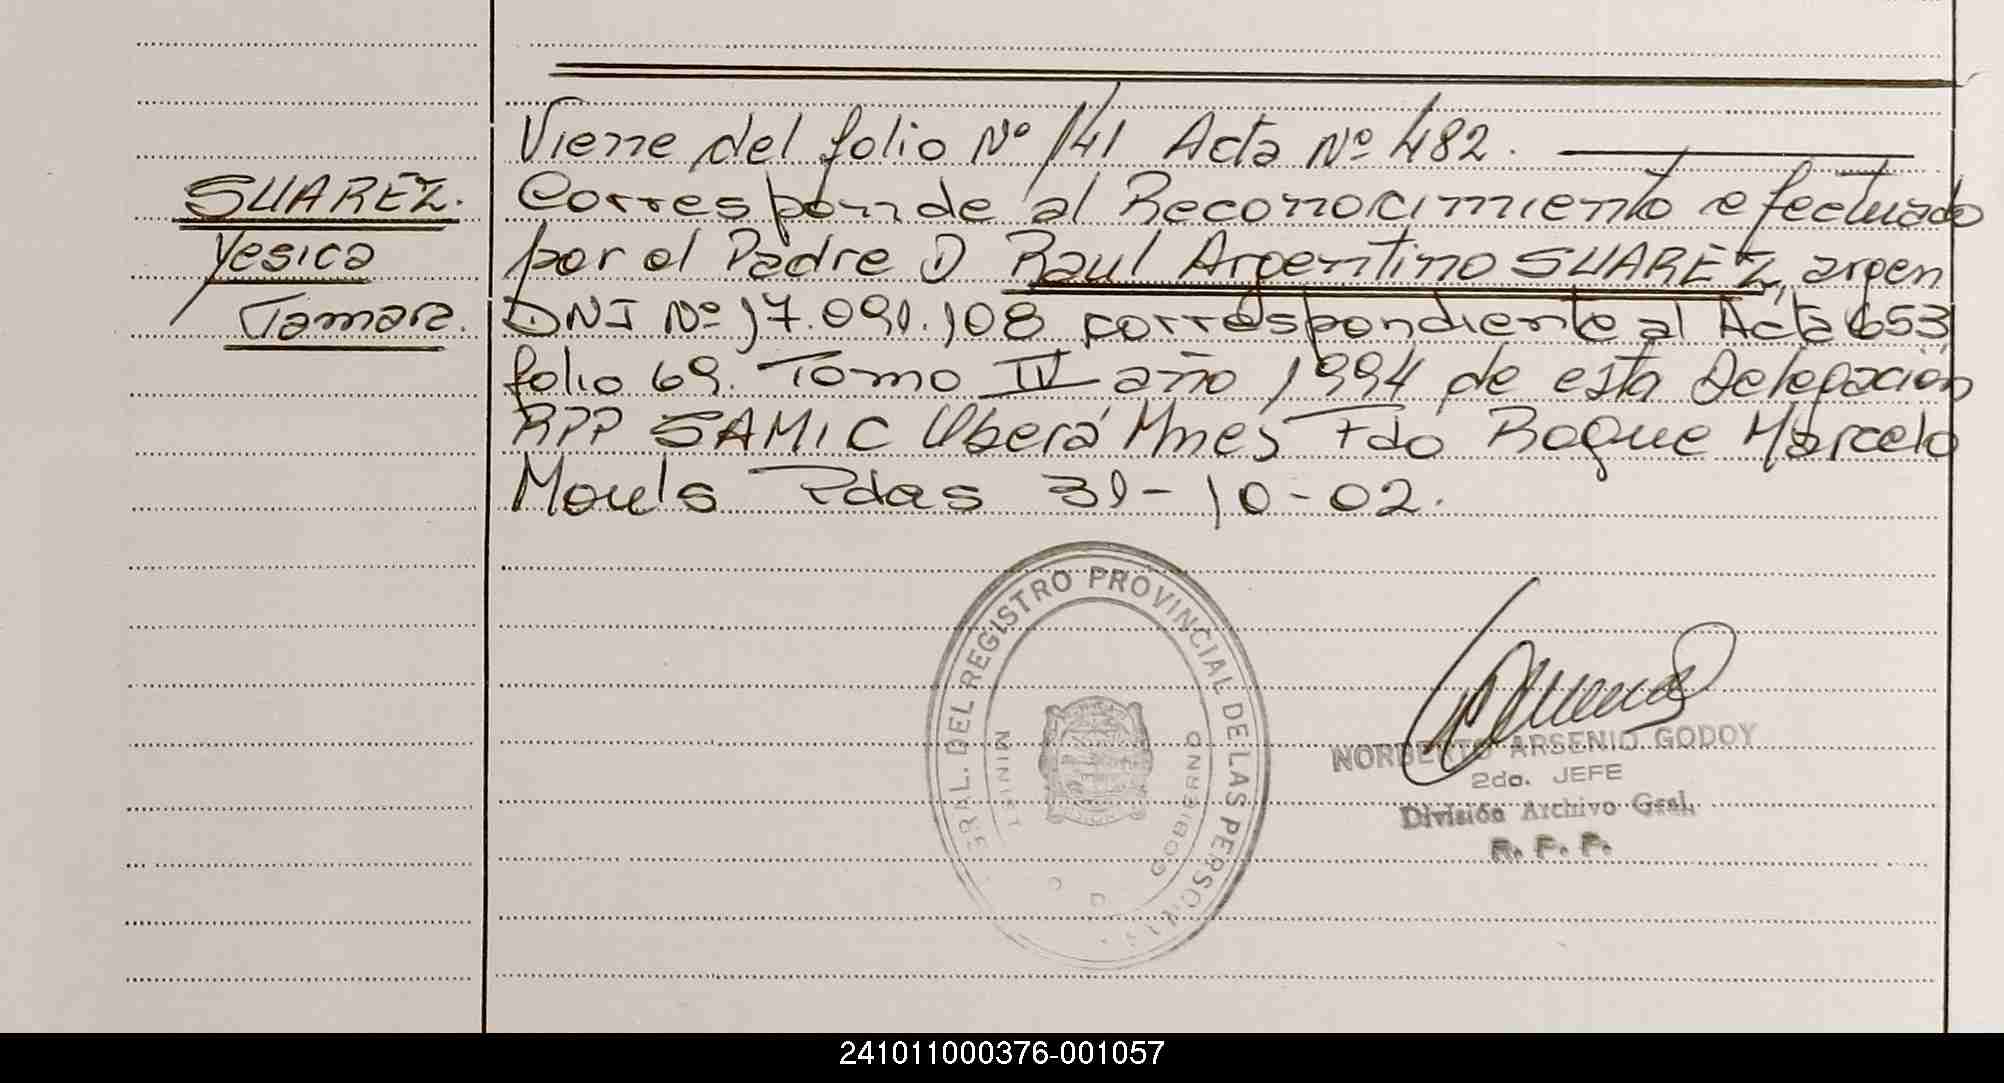 Viene del folio Nº 141 Acta Nº 482.
SUAREZ. Corresponde al Reconocimiento efectuado
Yesica por el Padre D Raul Argentino SUAREZ, argen
Tamara. DNI Nº 17.091.108 correspondiente al Acta 653,
folio 69. Tomo IV año 1994 de esta Delegación
RPP SAMIC Oberá Mnes Fdo Roque Marcelo
Mouls Pdas 31-10-02.
ERAL. DEL REGISTRO PROVINCIAL DE LAS PERSO
MINIST GOBIERNO
NORBERTO ARSENIO GODOY
2do. JEFE
División Archivo Gral.
R. P. P.
241011000376-001057